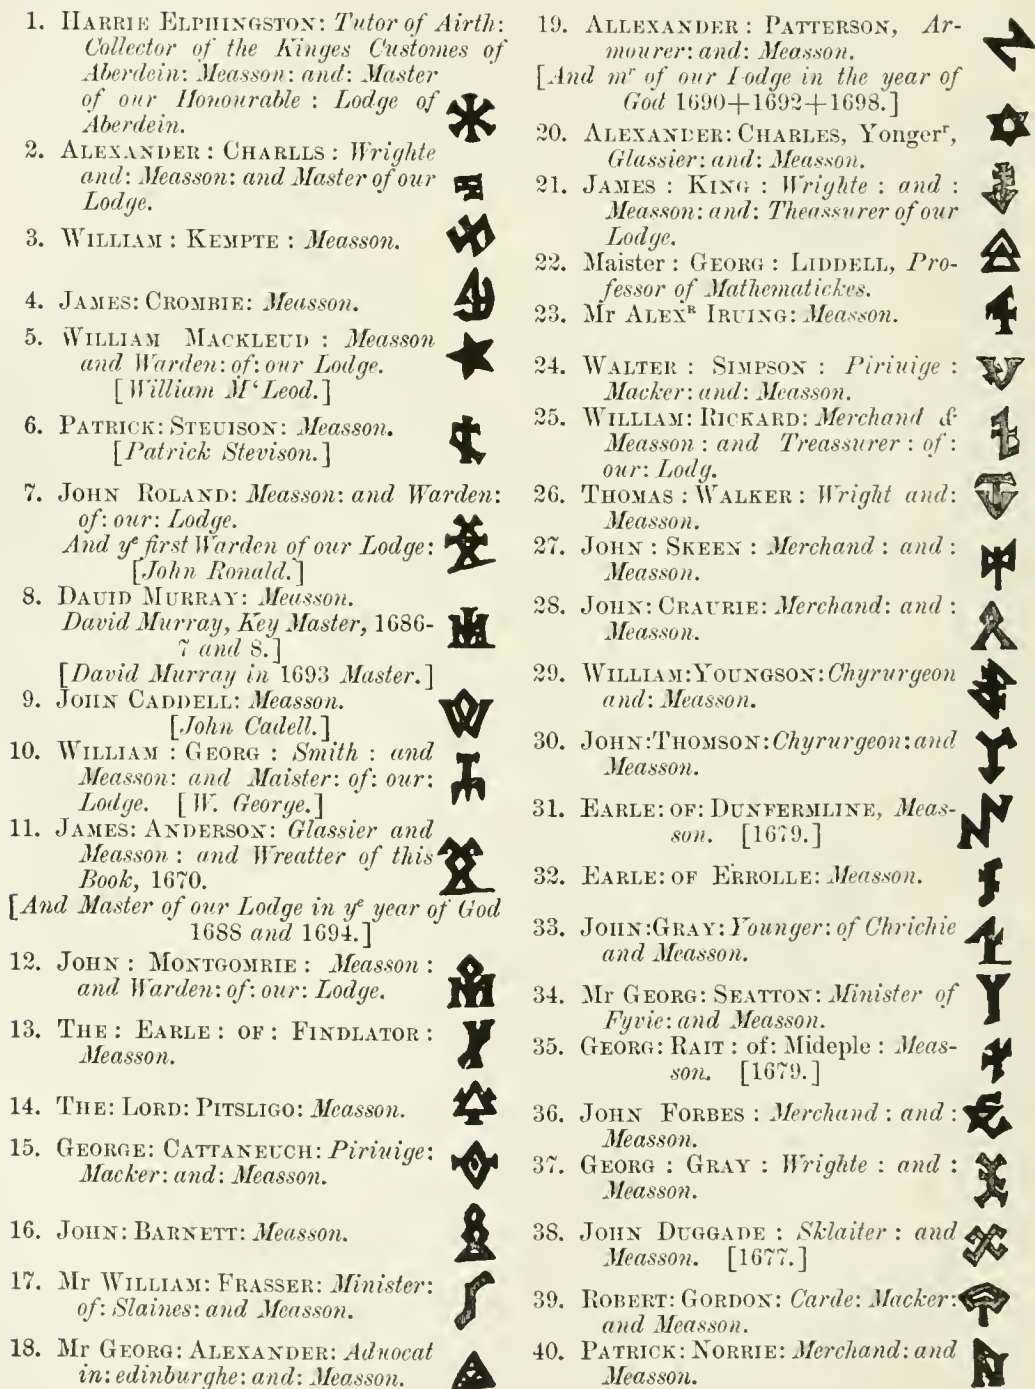 1. HARRIE ELPHINGSTON: Tutor of Airth:
Collector of the Kinges Customes of
Aberdein: Measson: and: Master
of our Honourable : Lodge of
Aberdein.
2. ALEXANDER : CHARLLS : Wrighte
and: Measson: and Master of our
Lodge.
3. WILLIAM : KEMPTE : Measson.
4. JAMES: CROMBIE: Measson.
5. WILLIAM MACKLEUD : Measson
and Warden: of: our Lodge.
[William M‘Leod.]
6. PATRICK: STEUISON: Measson.
[Patrick Stevison.]
7. JOHN ROLAND: Measson: and Warden:
of: our: Lodge.
And yᵉ first Warden of our Lodge:
[John Ronald.]
8. DAUID MURRAY: Measson.
David Murray, Key Master, 1686-
7 and 8.]
[David Murray in 1693 Master.]
9. JOHN CADDELL: Measson.
[John Cadell.]
10. WILLIAM : GEORG : Smith : and
Measson: and Maister: of: our:
Lodge. [W. George.]
11. JAMES: ANDERSON: Glassier and
Measson : and Wreatter of this
Book, 1670.
[And Master of our Lodge in yᵉ year of God
1688 and 1694.]
12. JOHN : MONTGOMRIE : Measson :
and Warden: of: our: Lodge.
13. THE : EARLE : OF : FINDLATOR :
Measson.
14. THE: LORD: PITSLIGO: Measson.
15. GEORGE: CATTANEUCH: Piriuige:
Macker: and: Measson.
16. JOHN: BARNETT: Measson.
17. Mr WILLIAM: FRASSER: Minister:
of: Slaines: and Measson.
18. Mr GEORG: ALEXANDER: Aduocat
in: edinburghe: and: Measson.
19. ALLEXANDER : PATTERSON, Ar-
mourer: and: Measson.
[And mʳ of our Lodge in the year of
God 1690+1692+1698.]
20. ALEXANDER: CHARLES, Yongerʳ,
Glassier: and: Measson.
21. JAMES : KING : Wrighte : and :
Measson: and: Theassurer of our
Lodge.
22. Maister : GEORG : LIDDELL, Pro-
fessor of Mathematickes.
23. Mr ALEXᴿ IRUING: Measson.
24. WALTER : SIMPSON : Piriuige :
Macker: and: Measson.
25. WILLIAM: RICKARD: Merchand &
Measson : and Treassurer : of :
our: Lodg.
26. THOMAS : WALKER : Wright and:
Measson.
27. JOHN : SKEEN : Merchand : and :
Measson.
28. JOHN: CRAURIE: Merchand: and :
Measson.
29. WILLIAM: YOUNGSON: Chyrurgeon
and: Measson.
30. JOHN: THOMSON: Chyrurgeon: and
Measson.
31. EARLE: OF: DUNFERMLINE, Meas-
son. [1679.]
32. EARLE: OF ERROLLE: Measson.
33. JOHN: GRAY: Younger: of Chrichie
and Measson.
34. Mr GEORG: SEATTON: Minister of
Fyvie: and Measson.
35. GEORG: RAIT : of: Mideple : Meas-
son. [1679.]
36. JOHN FORBES : Merchand : and :
Measson.
37. GEORG : GRAY : Wrighte : and :
Measson.
38. JOHN DUGGADE : Sklaiter : and
Measson. [1677.]
39. ROBERT: GORDON: Carde: Macker:
and Measson.
40. PATRICK: NORRIE: Merchand: and
Measson.